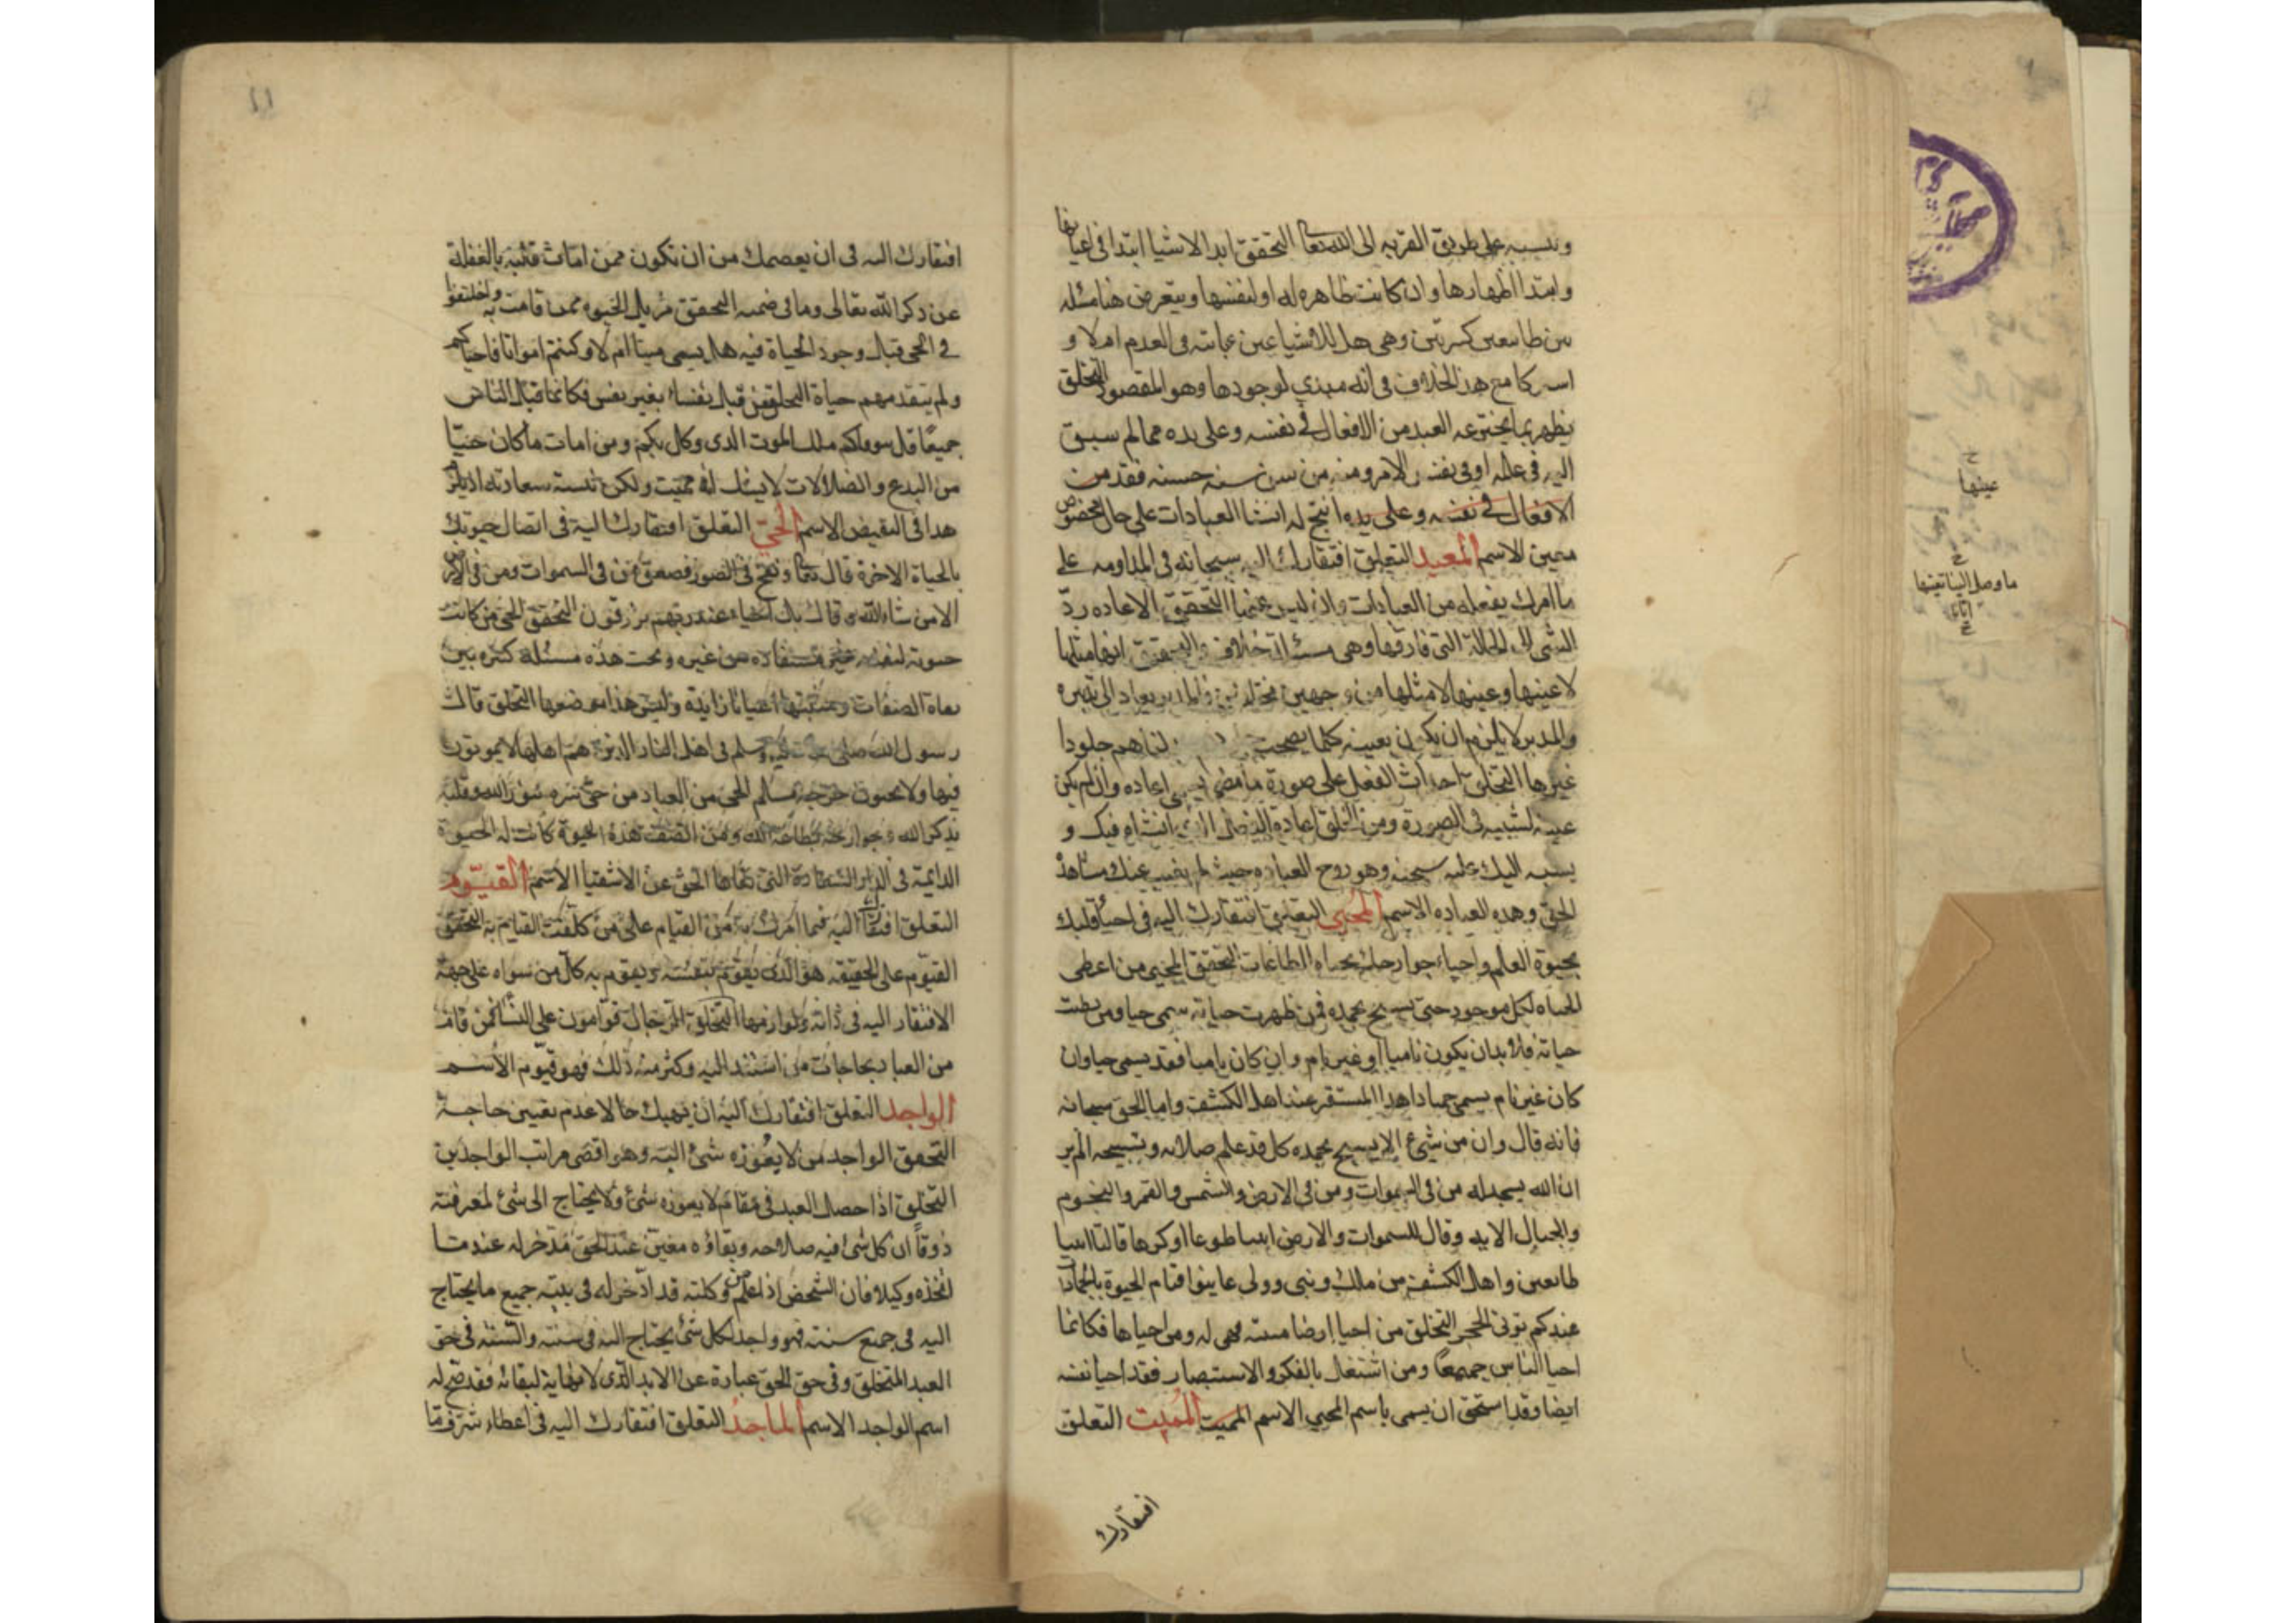 وينسبه على طريق القربه الى الله تعا التحقق ابدا الاشيا ابتدا فى اعيانها
وابتدا اظهارها وان كانت ظاهره له او لنفسها ويتعرض هنا مسئله
بين طائفتين كبيرتين وهى هل للاشيا عين ثابته فى العدم ام لا و
مع هذا الخلاف فى انه مبدى لوجودها وهو المقصود التخلق
يظهر بما يخترعه العبد من الافعال فى نفسه وعلى يده مما لم يسبق
اليه فى علمه او فى نفس الامر ومنه من سن سنه حسنه فقد من
الافعال فى نفسه وعلى يده انتج له انشا العبادات على حال مخصوص
معين الاسم المعيد التعلق افتقارك اليه سبحانه فى المداومه على
ما امرك بفعله من العبادات واذ ليس عينها التحقق الاعاده ردّ
الشى الى الحالة التى فارقها وهى مسئلة خلاف انها مثلها
لا عينها وعينها لا مثلها من وجهين مختلفين يعاد الى تدبيره
والمدبر لا يلزم ان يكون بعينه كلما نضجت بدلناهم جلودا
غيرها التخلق احداث الفعل على صورة ما مضى اعاده وان لم يكن
عينه لشبيه فى الصورة ومن التخلق اعادة الفضل الى انشاه فيك و
ينسب اليك عليه سبحنه وهو روح العباده حيث لم يغيب عنك مشاهدة
الحق وهذه العباده الاسم المحيى التعلق افتقارك اليه فى احيا قلبك
بحيوة العلم واحياء جوارحك بحياه الطاعات التحقق المحيى من اعطى
الحياه لكل موجود حتى يسبح بحمده فمن ظهرت حياته سمى حيا ومن بطنت
حياته فلا بد ان يكون ناميا او غير نام وان كان ناميا فقد يسمى حيا وان
كان غير نام يسمى جمادا هذا المستقر عند اهل الكشف واما الحق سبحانه
فانه قال وان من شىء الا يسبح بحمده كل قد علم صلاته وتسبيحه الم تر
ان الله يسجد له من فى السموات ومن فى الارض والشمس والقمر والنجوم
والجبال الايه وقال للسموات والارض ايتيا طوعا او كرها قالتا اتينا
طائعين واهل الكشف من ملك ونبى وولى عاينوا قيام الحيوة بالجماد
عندكم التخلق من احيا ارضا ميتة فهى له ومن احياها فكانما
احيا الناس جميعا ومن اشتغل بالفكر والاستبصار فقد احيا نفسه
ايضا وقد استحق ان يسمى باسم المحيى الاسم المميت المميت التعلق
افتقارك
عينها
ما وصل الينا
افتقارك اليه فى ان يعصمك من ان تكون ممن امات قلبه بالغفلة
عن ذكر الله تعالى وما فى ضمنه التحقق مزيل الحيوه ممن قامت به واختلفوا
فى الحى قبل وجود الحياة فيه هل يسمى ميتا ام لا وكنتم امواتا فاحياكم
ولم يتقدمهم حياة التخلق من قتل نفسا بغير نفس فكانما قتل الناس
جميعا قل يتوفاكم ملك الموت الذى وكل بكم ومن امات ما كان حيّا
من البدع والضلالات لا يشك انه مميت ولكن
هذا فى النقيض الاسم الحىّ التعلق افتقارك اليه فى اتصال حيوتك
بالحياة الاخرة قال تعا ونفخ فى الصور فصعق من فى السموات ومن فى الارض
الا من شاء الله وقال بل احياء عند ربهم يرزقون التحقق الحى من كانت
حيوته لنفسه غير مستفاده من غيره وتحت هذه مسئلة كبيره بين
نفاة الصفات ومثبتها اعيانا زايدة وليس هذا موضعها التخلق قال
رسول الله صلى الله عليه وسلم فى اهل النار الذين هم اهلها لا يموتون
فيها ولا يحيون خرجه مسلم الحى من العباد من حيى سره بنور الله وقلبه
بذكر الله وجوارحه بطاعة الله ومن اتصف بهذه الحيوة كانت له الحيوة
الدائمة فى الدار السعادة التى نفاها الحق عن الاشقيا الاسم القيّوم
التعلق افتقارك اليه فيما امرك به من القيام على من كلفت القيام به التحقق
القيّوم على الحقيقه هو الذى يقوم بنفسه ويقوم به كل من سواه على جهة
الافتقار اليه فى ذاته ولوازمها التخلق الرجال قوامون على النسا فمن قام
من العباد بحاجات من استند اليه وكثر منه ذلك فهو قيّوم الاسم
الواجد التعلق افتقارك اليه ان يهبك حالا عدم تعيين حاجة
التحقق الواجد من لا يعوزه شئ البته وهو اقصى مراتب الواجدين
التخلق اذا حصل العبد فى مقام لا يعوزه شئ ولا يحتاج الى شئ لمعرفته
ذوقاً ان كل شئ فيه صلاحه وبقاؤه معين عند الحق مدخر له عندما
اتخذه وكيلا فان الشخص اذا علم من وكلته قد ادّخر له فى بيته جميع ما يحتاج
اليه فى جميع سنته فهو واجد لكل شئ يحتاج اليه فى سنته والسنة فى حق
العبد المتخلق وفى حق الحق عبارة عن الابد الذى لا نهاية لبقائه فقد صح له
اسم الواجد الاسم الماجد التعلق افتقارك اليه فى اعطاء شرف ما